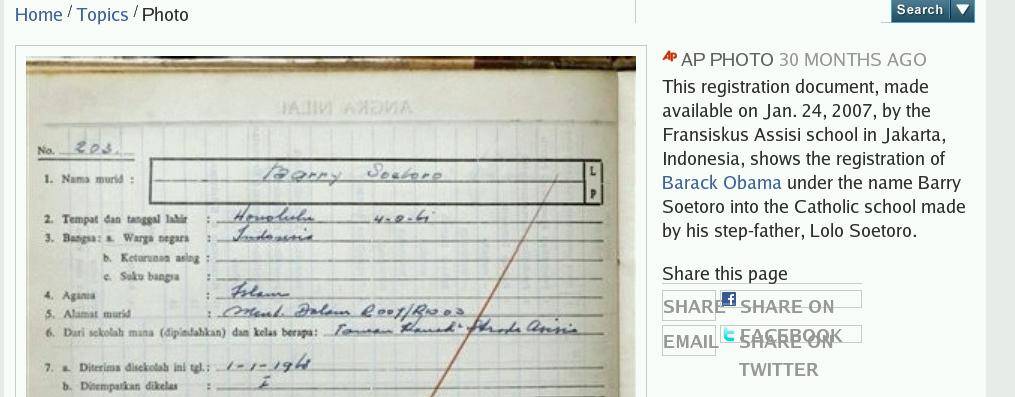 Home / Topics / Photo
Search
ANGKA NILAI
No. 203.
1. Nama murid : Barry Soetoro
L
P
2. Tempat dan tanggal lahir : Honolulu 4-8-61
3. Bangsa: a. Warga negara : Indonesia
b. Keturunan asing :
c. Suku bangsa :
4. Agama : Islam
5. Alamat murid : Ment. Dalam R007/R1003
6. Dari sekolah mana (dipindahkan) dan kelas berapa: Taman Kanak² Strada Asisi
7. a. Diterima disekolah ini tgl.: 1-1-1968
b. Ditempatkan dikelas : I
AP AP PHOTO 30 MONTHS AGO
This registration document, made
available on Jan. 24, 2007, by the
Fransiskus Assisi school in Jakarta,
Indonesia, shows the registration of
Barack Obama under the name Barry
Soetoro into the Catholic school made
by his step-father, Lolo Soetoro.
Share this page
SHARE SHARE ON
FACEBOOK
EMAIL SHARE ON
TWITTER